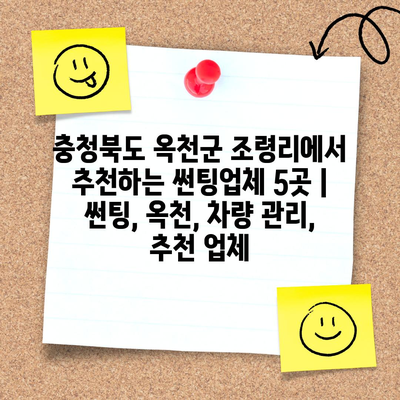 충청북도 옥천군 조령리에서
추천하는 썬팅업체 5곳 |
썬팅, 옥천, 차량 관리,
추천 업체